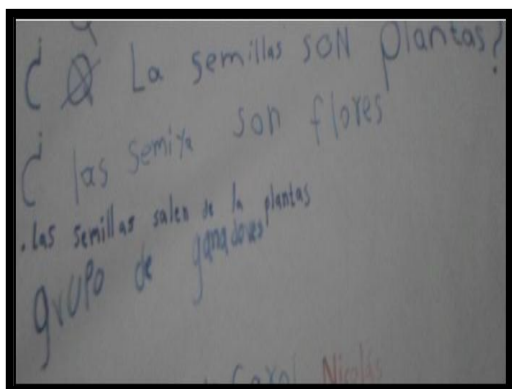 ¿ La semillas SON plantas?
¿ las semiya son flores
. las semillas salen de la plantas
grupo de ganadores
Carol Nicolás